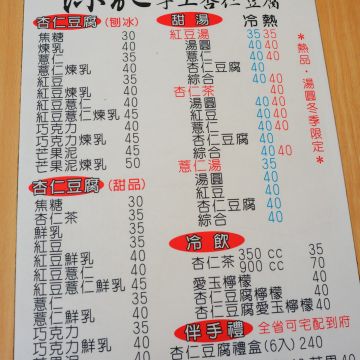 手工杏仁豆腐
杏仁豆腐(刨冰)
焦糖 30
煉乳 40
薏仁 40
薏仁煉乳 40
紅豆 40
紅豆煉乳 40
紅豆薏仁 40
紅豆薏仁煉乳 45
巧克力 40
巧克力煉乳 45
芒果泥 45
芒果泥煉乳 50
杏仁豆腐(甜品)
焦糖 30
杏仁茶 35
鮮乳 35
紅豆 35
紅豆鮮乳 40
紅豆薏仁 40
紅豆薏仁鮮乳 45
薏仁 35
薏仁鮮乳 40
巧克力 35
巧克力鮮乳
芒果泥
甜湯 冷熱
紅豆湯 35 35
湯圓 40 40
薏仁 40 40
杏仁豆腐 40
綜合 40 40
杏仁茶 35 40
湯圓 40 40
紅豆 40 40
薏仁 40 40
杏仁豆腐 40
綜合 40 40
薏仁湯 35
湯圓 40
紅豆 40
杏仁豆腐 40
綜合 40
*熱品、湯圓冬季限定*
冷飲
杏仁茶 350 cc 35
900 cc 70
愛玉檸檬 40
杏仁豆腐檸檬 40
杏仁豆腐愛玉檸檬 40
伴手禮 全省可宅配到府
杏仁豆腐禮盒(6入) 240